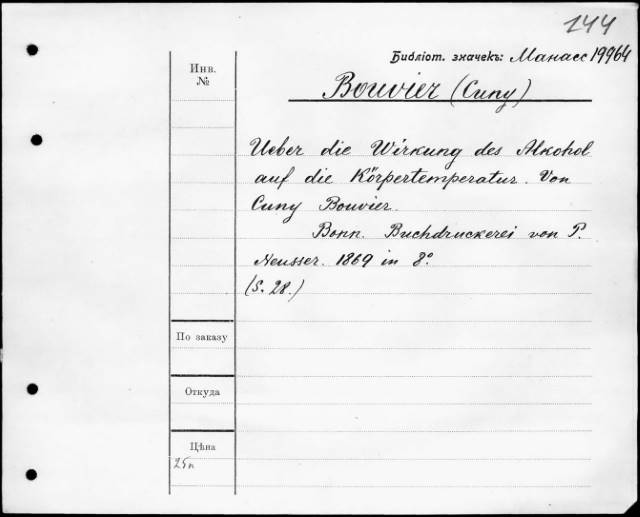 144
Библіот. значекъ: Манасс 19964
Инв.
№
Bouvier (Cuny)
Ueber die Wirkung des Alkohol
auf die Körpertemperatur. Von
Cuny Bouvier.
Bonn. Buchdruckerei von P.
Neusser. 1869 in 8°.
(S. 28.)
По заказу
Откуда
Цѣна
25к